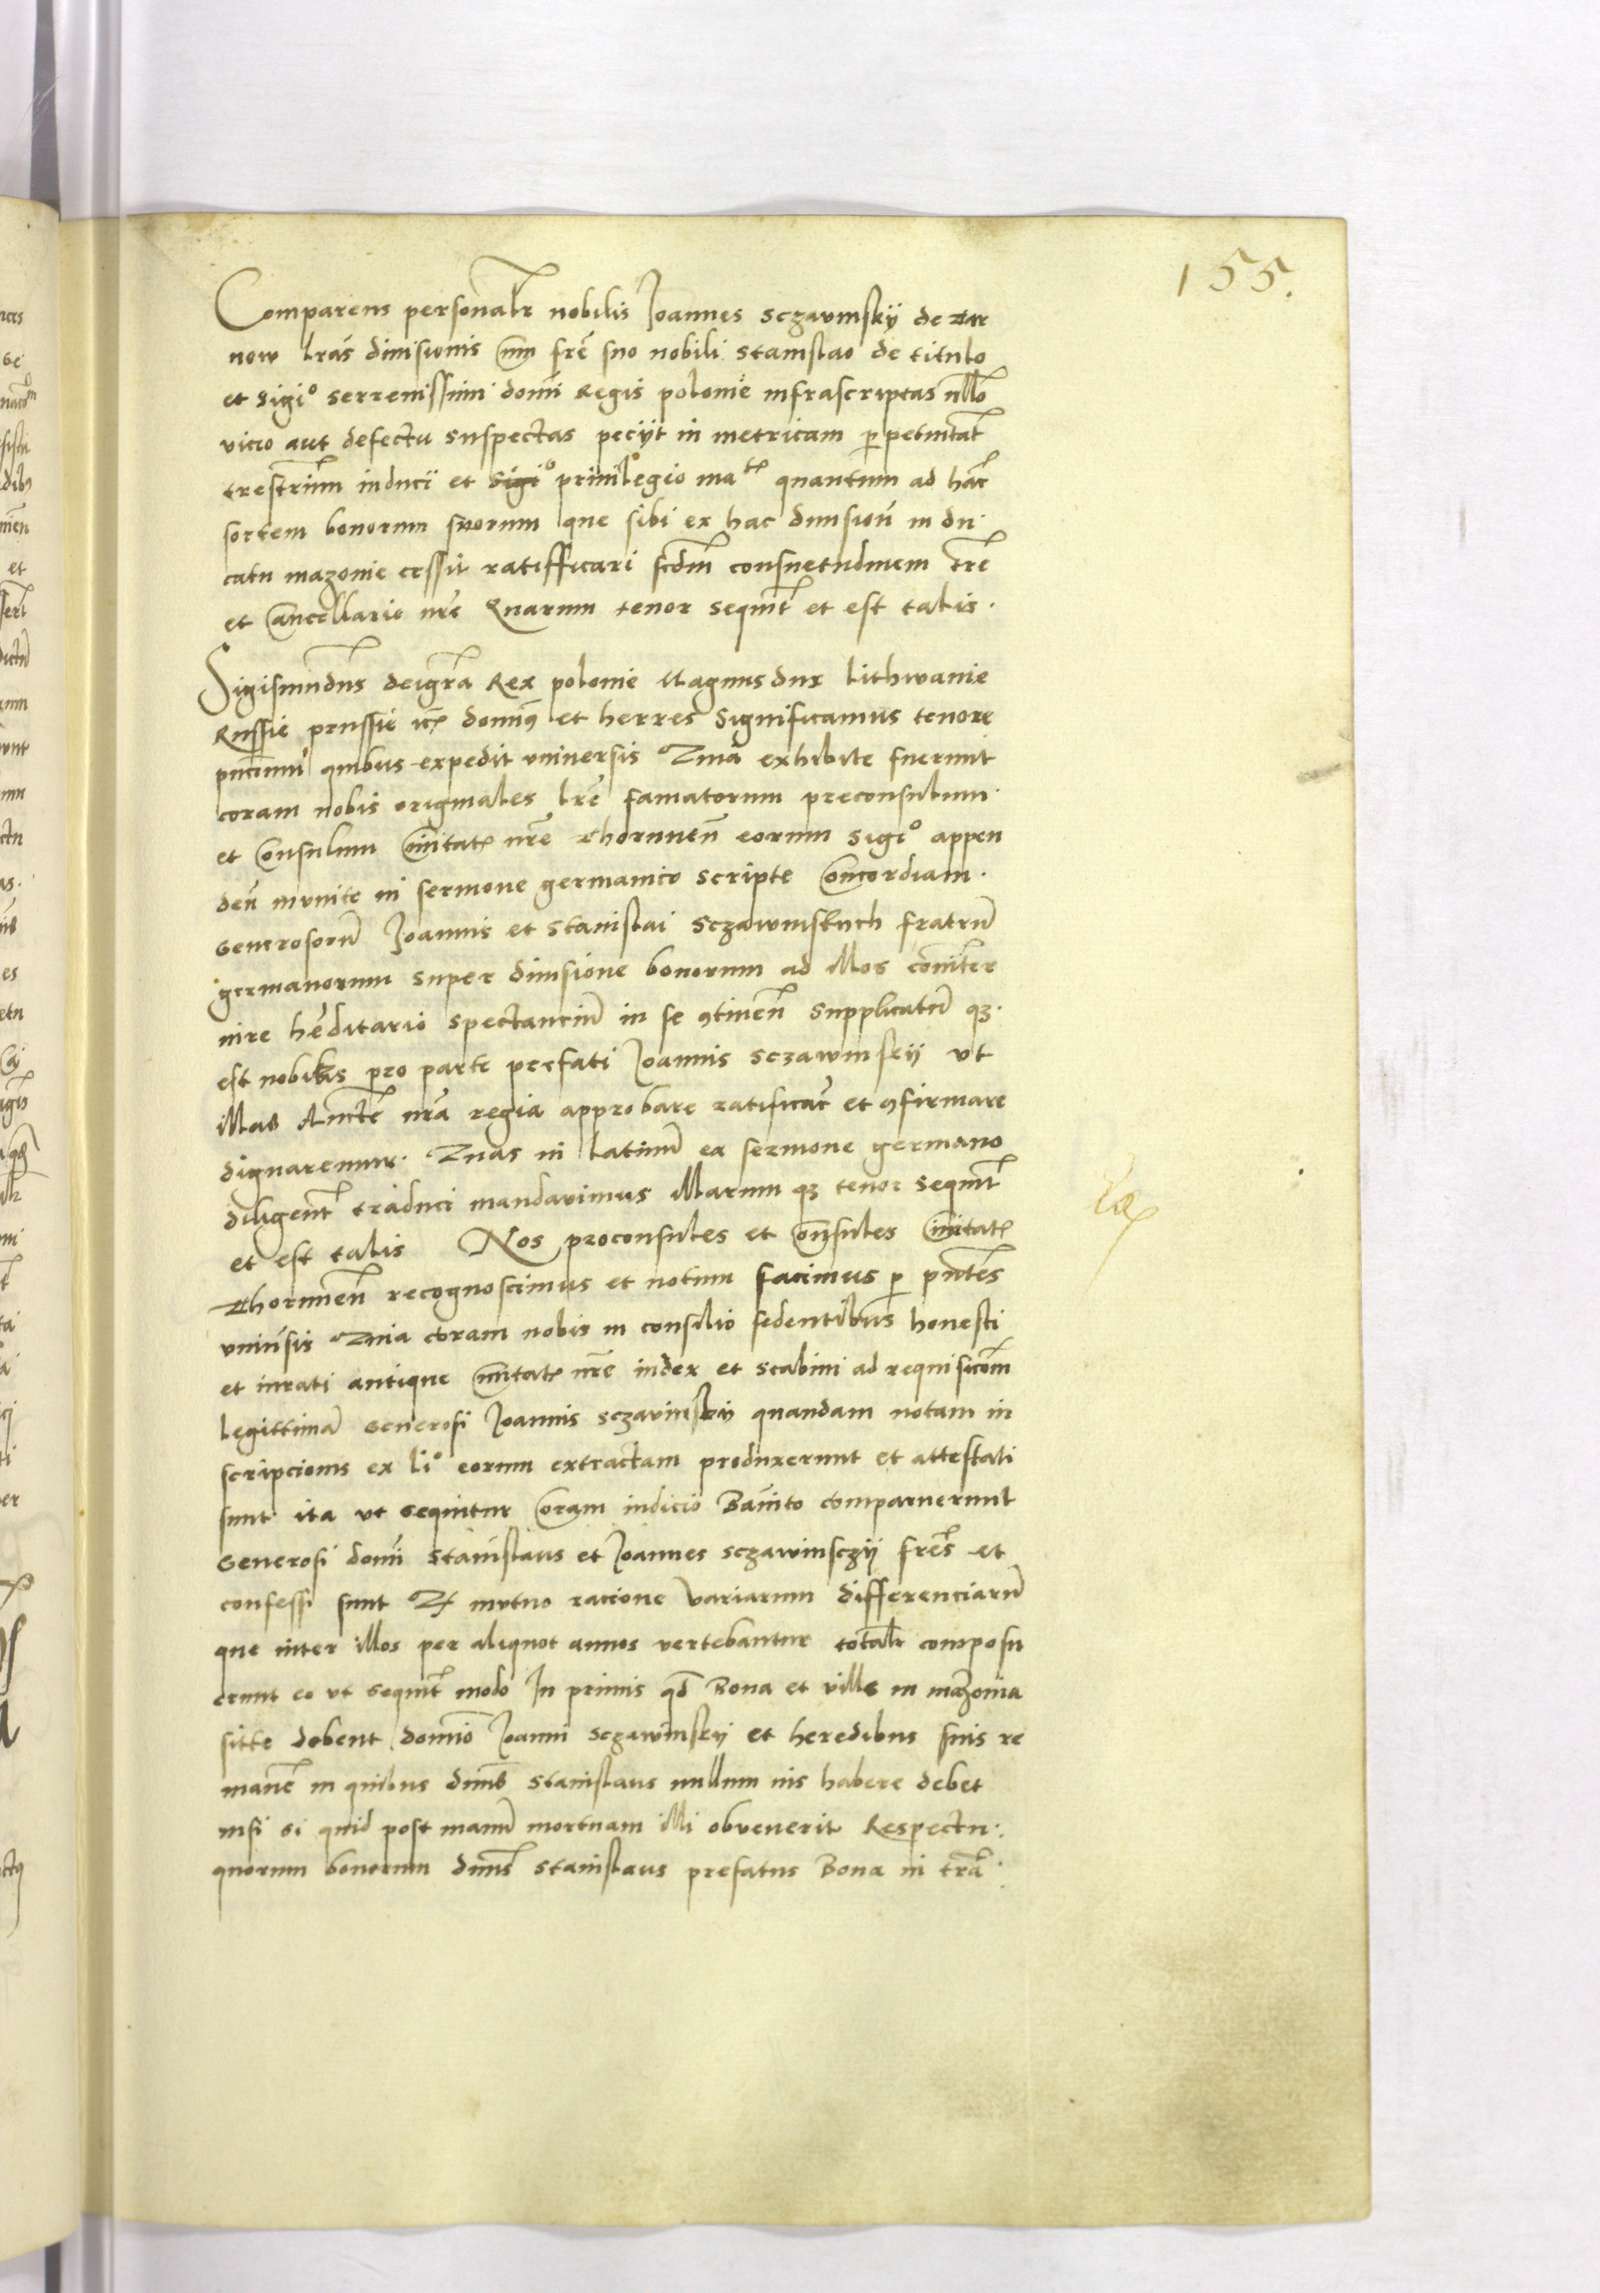 155.
Comparens personalr nobilis Joannes sczavinsky de Tar
now lras divisionis cum fre suo nobili stanislao de titulo
et sigio serrenissimi domi Regis polonie infrascriptas nullo
vicio aut defectu suspectas peciit in metricam perpetuitat
trestrium induci et privilegio quantum ad hac
sortem bonorum suorum que sibi ex hac division in du
catu mazovie cessit ratifficari scdm consuetudinem tre
et Cancellarie nre Quarum tenor sequit et est talis.
Sigismundus dei gra Rex polonie Magnus dux Lithwanie
Russie prussie etc dominus et herres Significamus tenore
pncium quibus expedit universis Quia exhibite fuerunt
coram nobis originales lre famatorum preconsulum
et Consulum Civitat nre Thorunen eorum sigio appen
den munite in sermone germanico scripte Concordiam.
Generosoru Joannis et Stanislai Sczawinskych fratru
germanorum super divisione bonorum ad illos coniter
iure hereditario spectanciu in se continen Supplicatu q3.
est nobis pro parte prefati Joannis sczawinsky ut
illas Aucte nra regia approbare ratificar et confirmare
dignaremur. Quas in latinu ex sermone germano
diligent traduci mandavimus illarum q3 tenor sequit
et est talis Nos proconsules et Consules Civitat
Thorunen recognoscimus et notum facimus per pntes
univsis Quia coram nobis in consilio sedentibus honesti
et iurati antique Civitat nre iudex et scabini ad requisicom
legittima Generosi Joannis sczavinsky quandam notam in
scripcionis ex lio eorum extractam produxerunt et attestati
sunt ita ut sequitur Coram iudicio Banito comparuerunt
Generosi domi Stanislaus et Joannes sczawinsczy fres et
confessi sunt Q mutuo racione variarum differenciaru
que inter illos per aliquot annos vertebantur totalr composu
erunt eo ut sequit modo In primis qd Bona et ville in mazovia
sitte debent domino Joanni sczawinsky et heredibus suis re
manere in quibus dnus Stanislaus nullum ius habere debet
nisi si quid post manu mortuam illi obvenerit Respectu
quorum bonorum dnus Stanislaus prefatus Bona in tra